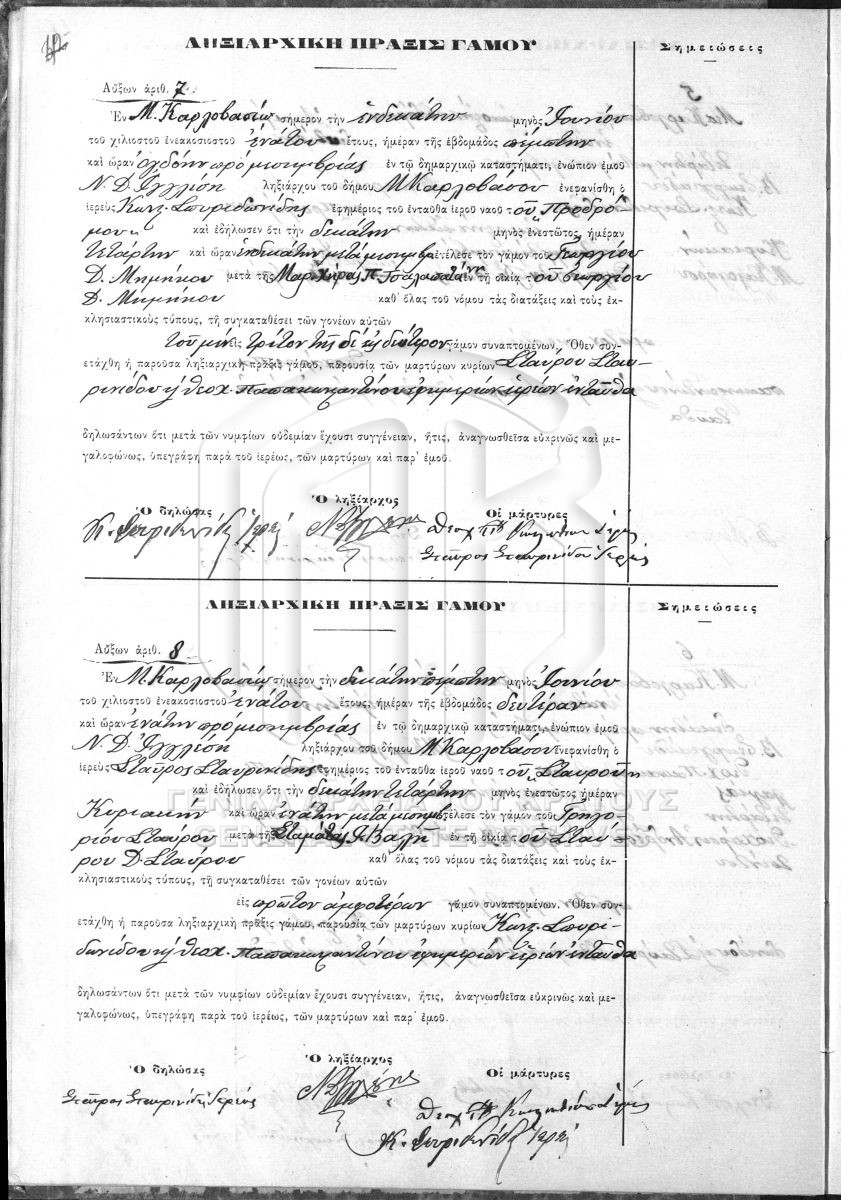 ΛΗΞΙΑΡΧΙΚΗ ΠΡΑΞΙΣ ΓΑΜΟΥ
Σημειώσεις
Αὔξων ἀριθ. 7
Ἐν Μ. Καρλοβασίῳ σήμερον τὴν ἑνδεκάτην μηνὸς Ἰουνίου
τοῦ χιλιοστοῦ ἐνεακοσιοστοῦ ἐνάτου ἔτους, ἡμέραν τῆς ἑβδομάδος πέμπτην
καὶ ὥραν ὀγδόην πρὸ μεσημβρίας ἐν τῷ δημαρχικῷ καταστήματι, ἐνώπιον ἐμοῦ
Ν. Δ. Ἰγγλέση ληξιάρχου τοῦ δήμου Μ Καρλοβάσου ἐνεφανίσθη ὁ
ἱερεὺς Κωνς. Σπυριδωνίδης ἐφημέριος τοῦ ἐνταῦθα ἱεροῦ ναοῦ τοῦ Προδρό-
μου καὶ ἐδήλωσεν ὅτι τὴν δεκάτην μηνὸς ἐνεστῶτος, ἡμέραν
τετάρτην καὶ ὥραν ἑνδεκάτην μετὰ μεσημβρ ἐτέλεσε τὸν γάμον τοῦ Γεωργίου
Δ. Μημήκου μετὰ τῆς Μαρ. χήρας Π. ἐν τῇ οἰκίᾳ τοῦ Γεωργίου
Δ. Μημήκου καθ᾽ ὅλας τοῦ νόμου τὰς διατάξεις καὶ τοὺς ἐκ-
κλησιαστικοὺς τύπους, τῇ συγκαταθέσει τῶν γονέων αὐτῶν
τοῦ μὲν εἰς τρίτον τῆς δὲ εἰς δεύτερον γάμον συναπτομένων. Ὅθεν συν-
ετάχθη ἡ παροῦσα ληξιαρχικὴ πρᾶξις γάμου, παρουσίᾳ τῶν μαρτύρων κυρίων Σταύρου Σταυ-
ρινίδου ἢ Θεοχ. Παπακωνσταντίνου ἐφημερίων ἱερέων ἐνταῦθα
δηλωσάντων ὅτι μετὰ τῶν νυμφίων οὐδεμίαν ἔχουσι συγγένειαν, ἥτις, ἀναγνωσθεῖσα εὐκρινῶς καὶ με-
γαλοφώνως, ὑπεγράφη παρὰ τοῦ ἱερέως, τῶν μαρτύρων καὶ παρ᾽ ἐμοῦ.
Ὁ δηλώσας
Ὁ ληξίαρχος
Οἱ μάρτυρες
Κ. Σπυριδωνίδης Ἱερεύς
Θεοχ Παπ Κωνσταντίνου Ἱερεύς
Σταῦρος Σταυρινίδης Ἱερεύς
ΛΗΞΙΑΡΧΙΚΗ ΠΡΑΞΙΣ ΓΑΜΟΥ
Σημειώσεις
Αὔξων ἀριθ. 8
Ἐν Μ. Καρλοβασίῳ σήμερον τὴν δεκάτην πέμπτην μηνὸς Ἰουνίου
τοῦ χιλιοστοῦ ἐνεακοσιοστοῦ ἐνάτου ἔτους, ἡμέραν τῆς ἑβδομάδος δευτέραν
καὶ ὥραν ἐνάτην πρὸ μεσημβρίας ἐν τῷ δημαρχικῷ καταστήματι, ἐνώπιον ἐμοῦ
Ν. Δ. Ἰγγλέση ληξιάρχου τοῦ δήμου Μ Καρλοβάσου ἐνεφανίσθη ὁ
ἱερεὺς Σταῦρος Σταυρινίδης ἐφημέριος τοῦ ἐνταῦθα ἱεροῦ ναοῦ τοῦ Σταυροῦ
καὶ ἐδήλωσεν ὅτι τὴν δεκάτην τετάρτην μηνὸς ἐνεστῶτος ἡμέραν
Κυριακὴν καὶ ὥραν ἐνάτην μετὰ μεσημβ ἐτέλεσε τὸν γάμον τοῦ Γρηγο-
ρίου Σταύρου μετὰ τῆς Σταμάτας Γ. Βαλῆ ἐν τῇ οἰκίᾳ τοῦ Σταύ-
ρου Δ. Σταύρου καθ᾽ ὅλας τοῦ νόμου τὰς διατάξεις καὶ τοὺς ἐκ-
κλησιαστικοὺς τύπους, τῇ συγκαταθέσει τῶν γονέων αὐτῶν
εἰς πρῶτον ἀμφοτέρων γάμον συναπτομένων. Ὅθεν συν-
ετάχθη ἡ παροῦσα ληξιαρχικὴ πρᾶξις γάμου, παρουσίᾳ τῶν μαρτύρων κυρίων Κωνς. Σπυρι-
δωνίδου ἢ Θεοχ. Παπακωνσταντίνου ἐφημερίων ἱερέων ἐνταῦθα
δηλωσάντων ὅτι μετὰ τῶν νυμφίων οὐδεμίαν ἔχουσι συγγένειαν, ἥτις, ἀναγνωσθεῖσα εὐκρινῶς καὶ με-
γαλοφώνως, ὑπεγράφη παρὰ τοῦ ἱερέως, τῶν μαρτύρων καὶ παρ᾽ ἐμοῦ.
Ὁ δηλώσας
Ὁ ληξίαρχος
Οἱ μάρτυρες
Σταῦρος Σταυρινίδης Ἱερεύς
Θεοχ Παπ Κωνσταντίνου Ἱερεύς
Κ. Σπυριδωνίδης Ἱερεύς
ΓΕΝΙΚΑ ΑΡΧΕΙΑ ΤΟΥ ΚΡΑΤΟΥΣ